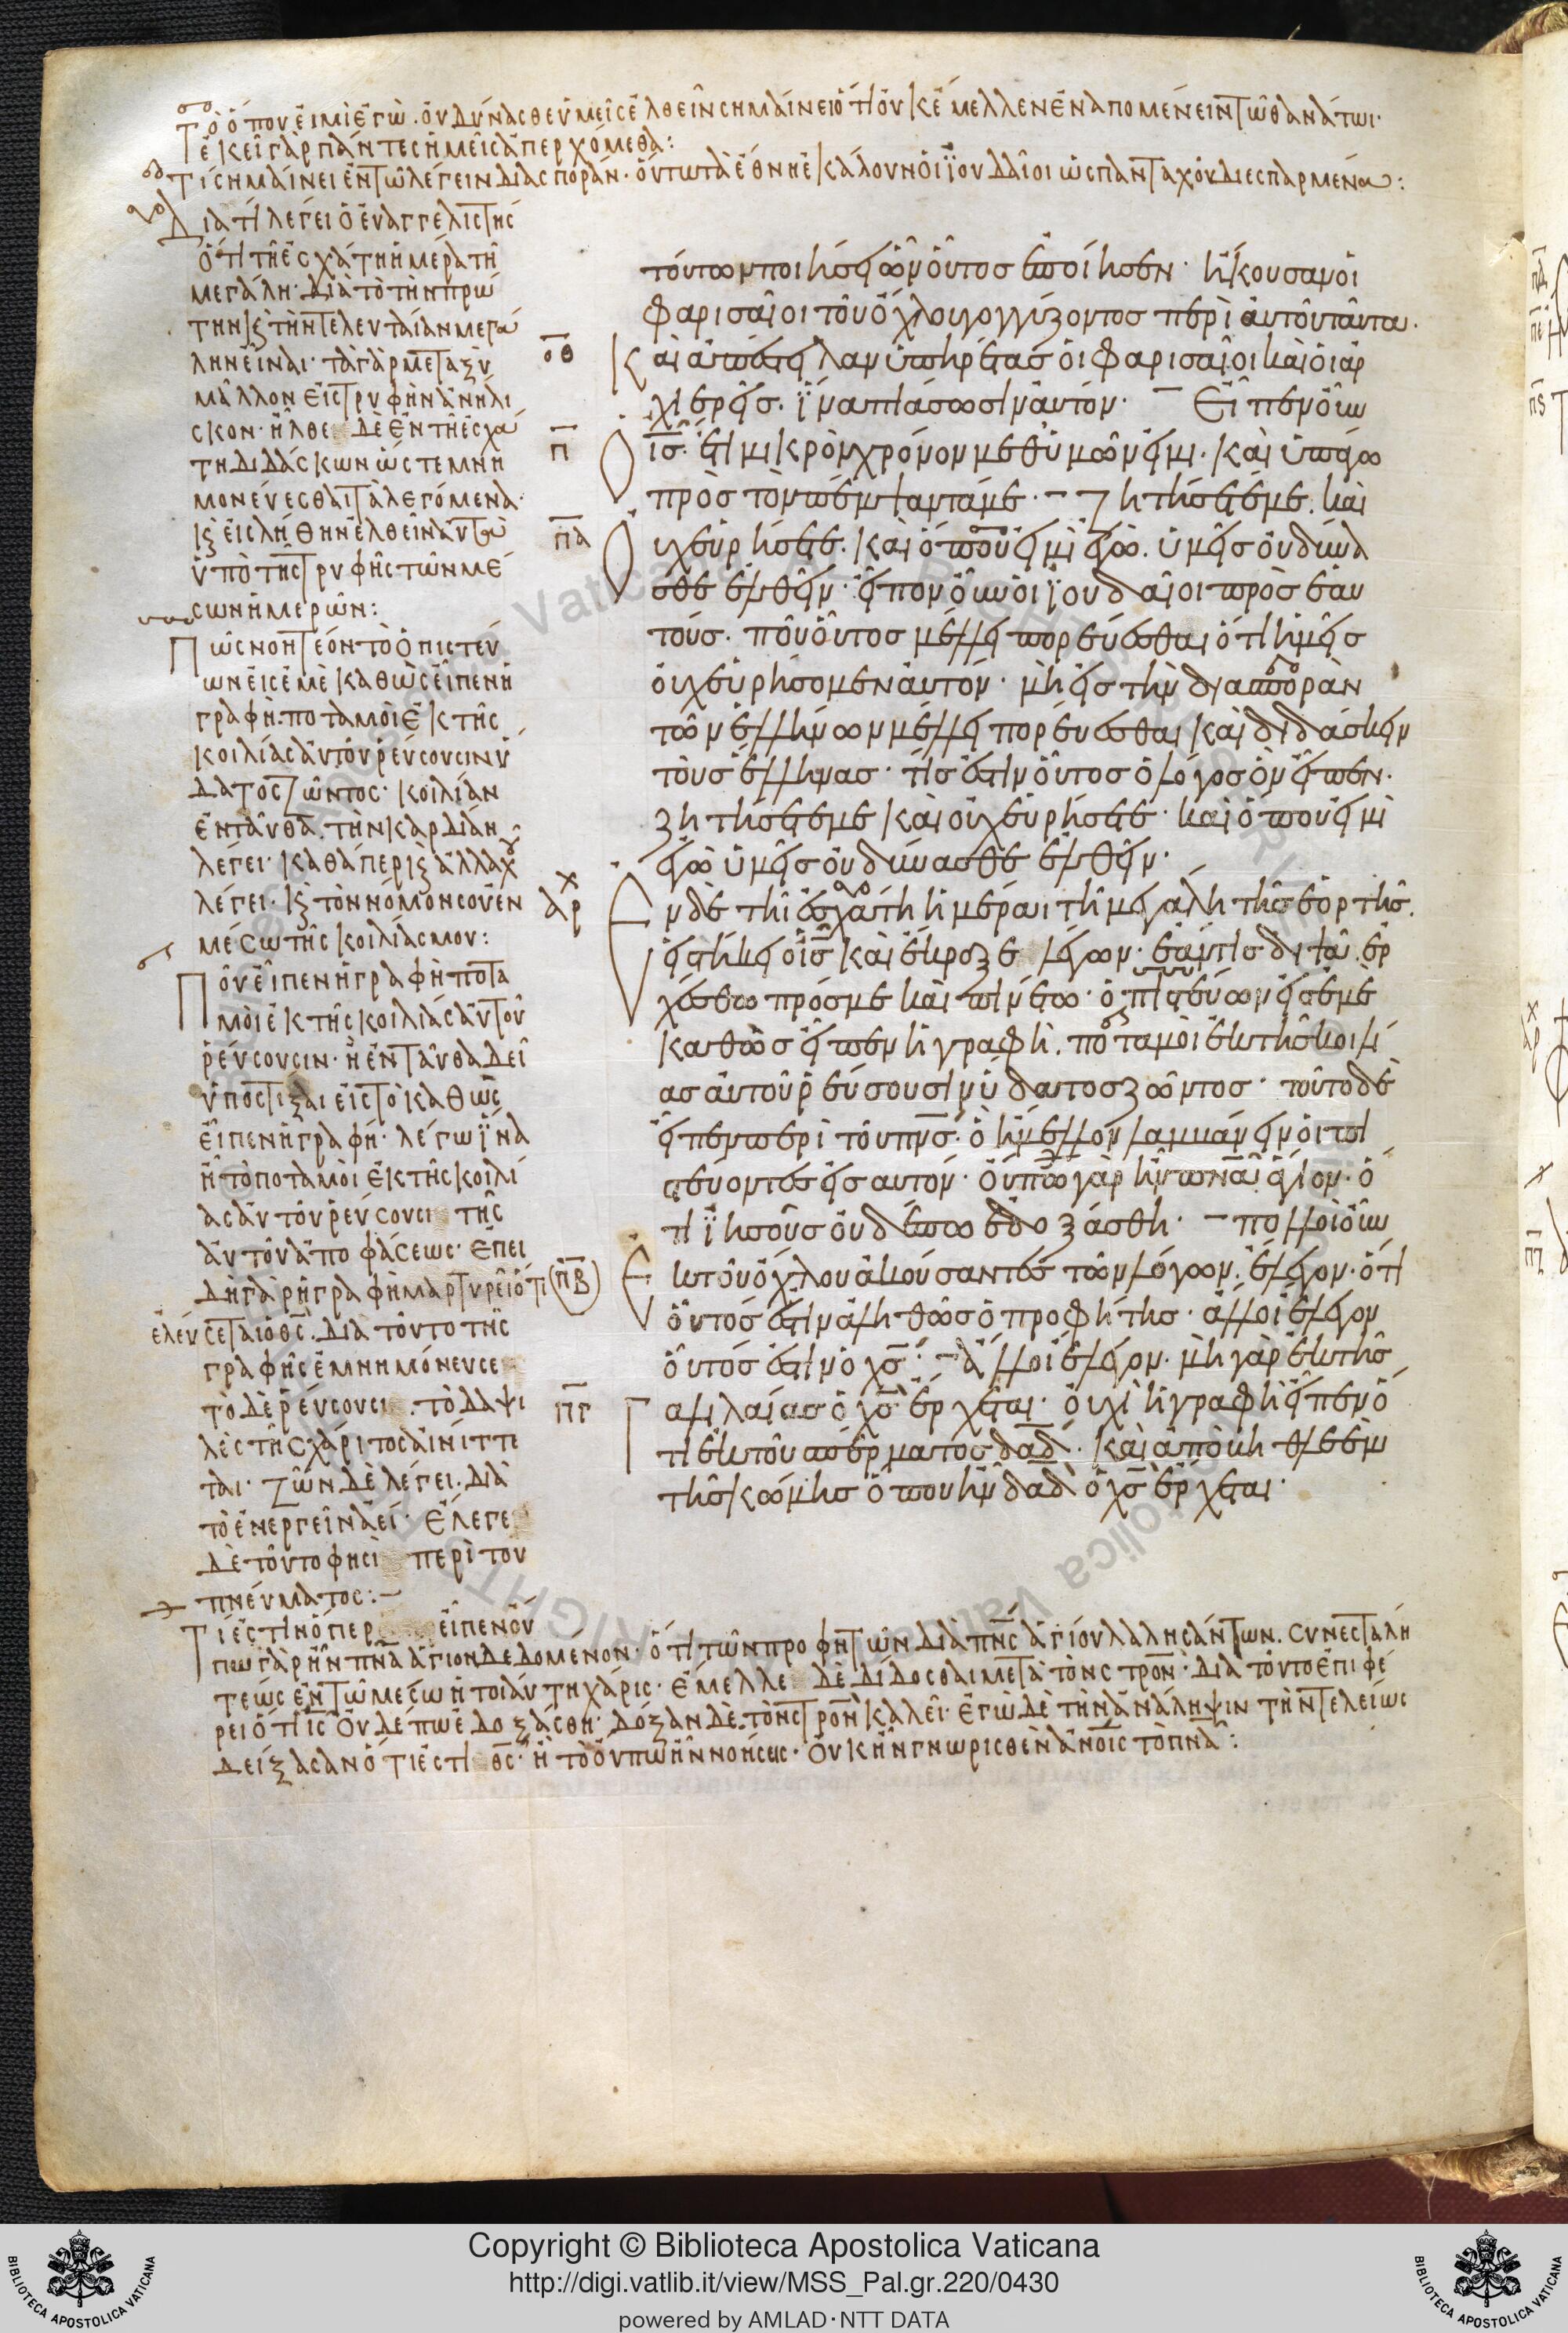 Τὸ ὅπου εἰμὶ ἐγὼ. οὐ δύνασθε ὑμεῖς ἐλθεῖν σημαίνει ὅτι οὐκ ἔμελλεν ἐναπομένειν τῷ θανάτωι·
ἐκεῖ γὰρ πάντες ἡμεῖς ἀπερχόμεθα:
Τί σημαίνει ἐν τῶ λέγειν διασποράν· οὕτω τὰ ἔθνη ἐκάλουν οἱ ϊουδαῖοι ὡς πανταχοῦ διεσπαρμένα:
Διατί λέγει ὁ εὐαγγελιστὴς
ὅτι τῆ ἐσχάτη ἡμέρα τῆ
μεγάλη· διὰ τὸ τὴν πρώ
την κ τὴν τελευταίαν μεγά
λην εἶναι· τὰ γὰρ μεταξὺ
μᾶλλον εἰς τρυφὴν ἀνήλι
σκον· ἦλθε δὲ ἐν τῆ ἐσχά
τη διδάσκων ὥστε μνη
μονεύεσθαι τὰ λεγόμενα·
κ εἰς λήθην ἐλθεῖν αὐτῶ
ὑπὸ τῆς τρυφῆς τῶν μέ
σων ἡμερῶν:
Πῶς νοητέον τὸ ὁ πιστεύ
ων εἰς ἐμὲ καθὼς εἶπεν ἡ
γραφὴ· ποταμοὶ ἐκ τῆς
κοιλίας αὐτοῦ ῥεύσουσιν ὕ
δατος ζῶντος· κοιλίαν
ἐνταῦθα τὴν καρδίαν
λέγει· καθάπερ κ ἀλλαχοῦ
λέγει· κ τὸν νόμον σου ἐν
μέσω τῆς κοιλίας μου:
Ποῦ εἶπεν ἡ γραφὴ ποτα
μοὶ ἐκ τῆς κοιλίας αὐτοῦ
ῥεύσουσιν· ἢ ἐνταῦθα δεῖ
ὑποστίξαι εἰς τὸ καθὼς
εἶπεν ἡ γραφή· λέγω ϊνα
ἢ τὸ ποταμοὶ ἐκ τῆς κοιλί
ας αὐτοῦ ῥεύσουσι τῆς
αὐτοῦ ἀποφάσεως· ἐπει
δὴ γὰρ ἡ γραφὴ μαρτυρεῖ ὅτι
ἐλεύσεται ὁ θς. διὰ τοῦτο τῆς
γραφῆς ἐμνημόνευσε
τὸ δὲ ῥεύσουσι. τὸ δαψι
λὲς τῆς χάριτος αἰνίττε
ται· ζῶν δὲ λέγει. διὰ
τὸ ἐνεργεῖν ἀεί· ἔλεγε
δὲ τοῦτο φησὶ περὶ του
πνεύματος:
Τί ἐστιν ὅπερ εἶπεν οὔ
πω γὰρ ἦν πνα ἅγιον δεδομένον· ὅτι τῶν προφητῶν διὰ πνς ἁγίου λαλησάντων. συνεστάλη
τέως ἐν τῶ μέσω ἡ τοιαύτη χάρις· ἔμελλε δὲ δίδοσθαι μετὰ τὸν στρον· διὰ τοῦτο ἐπιφέ
ρει ὅτι ις οὐδέπω ἐδοξάσθη· δόξαν δὲ τὸν στρον καλεῖ· ἐγὼ δὲ τὴν ἀνάληψιν τὴν τελείως
δείξασαν ὅτι ἐστι θς· ἢ τὸ οὔπω ἦν νοήσεις· οὐκ ἦν γνωρισθὲν ἀνοις τὸ πνα:
τούτων ποιήσει ὧν οὗτος ἐποίησεν· ἤκουσαν οἱ
φαρισαῖοι τοῦ ὄχλου γογγύζοντος περὶ αὐτοῦ ταῦτα·
οθ Καὶ ἀπέστειλαν ὑπηρέτας οἱ φαρισαῖοι καὶ οἱ ἀρ
χιερεῖς. ϊνα πιάσωσιν αὐτόν· Εἶπεν οὖν
π ὁ ις. ἔτι μικρὸν χρόνον μεθ' ὑμῶν εἰμι. καὶ ὑπάγω
πρὸς τὸν πέμψαντά με· ζητήσετέ με. καὶ
πα οὐχ εὑρήσετε. καὶ ὅπου εἰμὶ ἐγὼ. ὑμεῖς οὐ δύνα
σθε ἐλθεῖν· εἶπον οὖν οἱ ϊουδαῖοι πρὸς ἑαυ
τούς. ποῦ οὗτος μέλλει πορεύεσθαι ὅτι ἡμεῖς
οὐχ εὑρήσομεν αὐτόν· μὴ εἰς τὴν διασπορὰν
τῶν ἑλλήνων μέλλει πορεύεσθαι καὶ διδάσκειν
τοὺς ἕλληνας· τίς ἐστιν οὗτος ὁ λόγος ὃν εἶπεν·
ζητήσετέ με καὶ οὐχ εὑρήσετε· καὶ ὅπου εἰμὶ
ἐγὼ ὑμεῖς οὐ δύνασθε ἐλθεῖν·
αρχ Εν δὲ τῆ ἐσχάτη ἡμέραι τῆ μεγάλη τῆς ἑορτῆς.
εἱστήκει ὁ ις καὶ ἔκραζε λέγων· ἐάν τις διψᾶ. ἐρ
χέσθω πρός με καὶ πινέτω· ὁ πιστεύων εἰς ἐμὲ
καθὼς εἶπεν ἡ γραφὴ. ποταμοὶ ἐκ τῆς κοιλί
ας αὐτοῦ ῥεύσουσιν ὕδατος ζῶντος· τοῦτο δὲ
εἶπεν περὶ τοῦ πνς. ὃ ἤμελλον λαμβάνειν οἱ πι
στεύοντες εἰς αὐτόν· οὔπω γὰρ ἦν πνα ἅγιον. ὅ
τι ϊησοῦς οὐδέπω ἐδοξάσθη· πολλοὶ οὖν
πβ Εκ τοῦ ὄχλου ἀκούσαντες τῶν λόγων. ἔλεγον· ὅτι
οὗτός ἐστιν ἀληθῶς ὁ προφήτης· ἄλλοι ἔλεγον
οὗτός ἐστιν ὁ χς· ἄλλοι ἔλεγον. μὴ γὰρ ἐκ τῆς
πγ Γαλιλαίας ὁ χς ἔρχεται· οὐχὶ ἡ γραφὴ εἶπεν ὅ
τι ἐκ τοῦ σπέρματος δαδ. καὶ ἀπὸ βηθλεὲμ
τῆς κώμης ὅπου ἦν δαδ ὁ χς ἔρχεται·
Copyright © Biblioteca Apostolica Vaticana
http://digi.vatlib.it/view/MSS_Pal.gr.220/0430
powered by AMLAD·NTT DATA
BIBLIOTECA APOSTOLICA VATICANA
BIBLIOTECA APOSTOLICA VATICANA